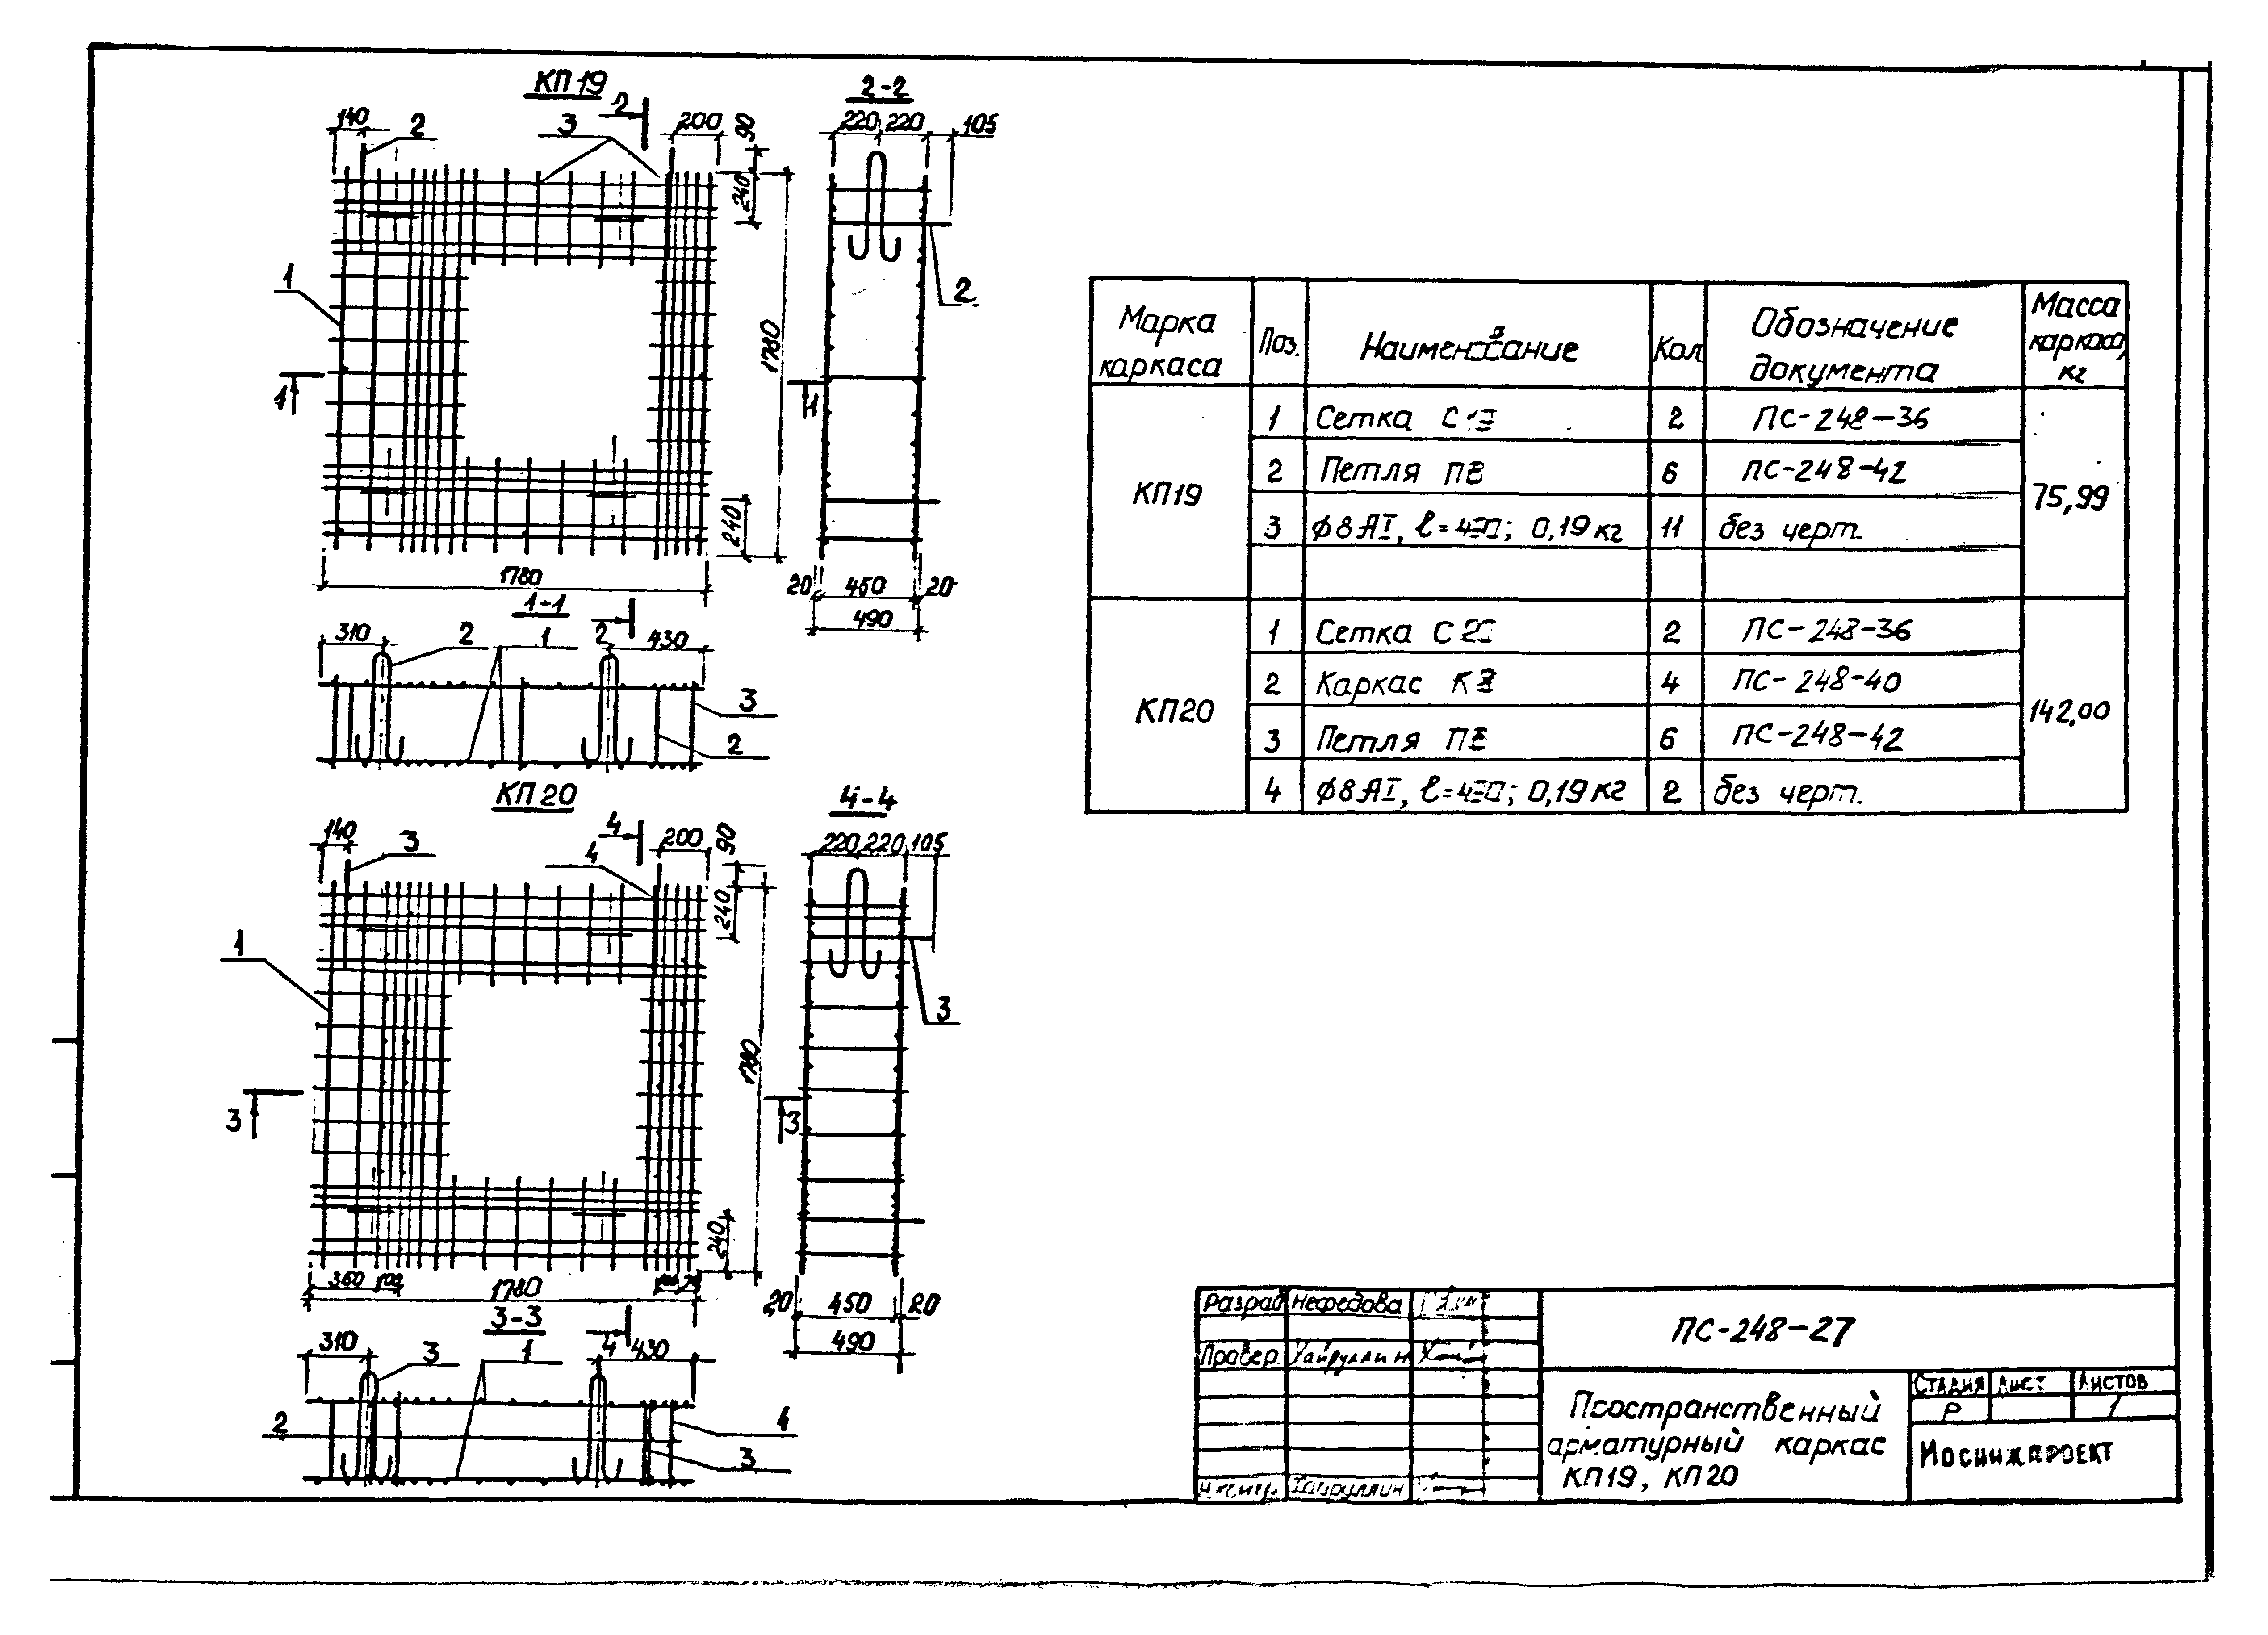 КП19
2-2
140
2
3
2
200
90
220
220
105
240
1
1780
2
1
1
240
1780
20
450
20
490
1-1
310
2
1
2
430
3
2
КП20
4-4
140
3
4
4
200
90
220
220
105
240
1
1780
3
3
3
240
360
100
1780
20
450
20
490
3-3
310
3
1
4
430
2
4
3
Марка каркаса
Поз.
Наименование
Кол
Обозначение документа
Масса каркаса, кг
КП19
1 Сетка 2 ПС-248-36
75,99
2 Петля 6 ПС-248-42
3 Ф8АI, ℓ= 0,19кг 11 без черт.
КП20
1 Сетка 2 ПС-248-36
142,00
2 Каркас 4 ПС-248-40
3 Петля 6 ПС-248-42
4 Ф8АI, ℓ= 0,19кг 2 без черт.
Разраб Нефедова
ПС-248-27
Провер. Хайруллин
Пространственный
арматурный каркас
КП19, КП20
Стадия Лист Листов
Р 1
Мосинжпроект